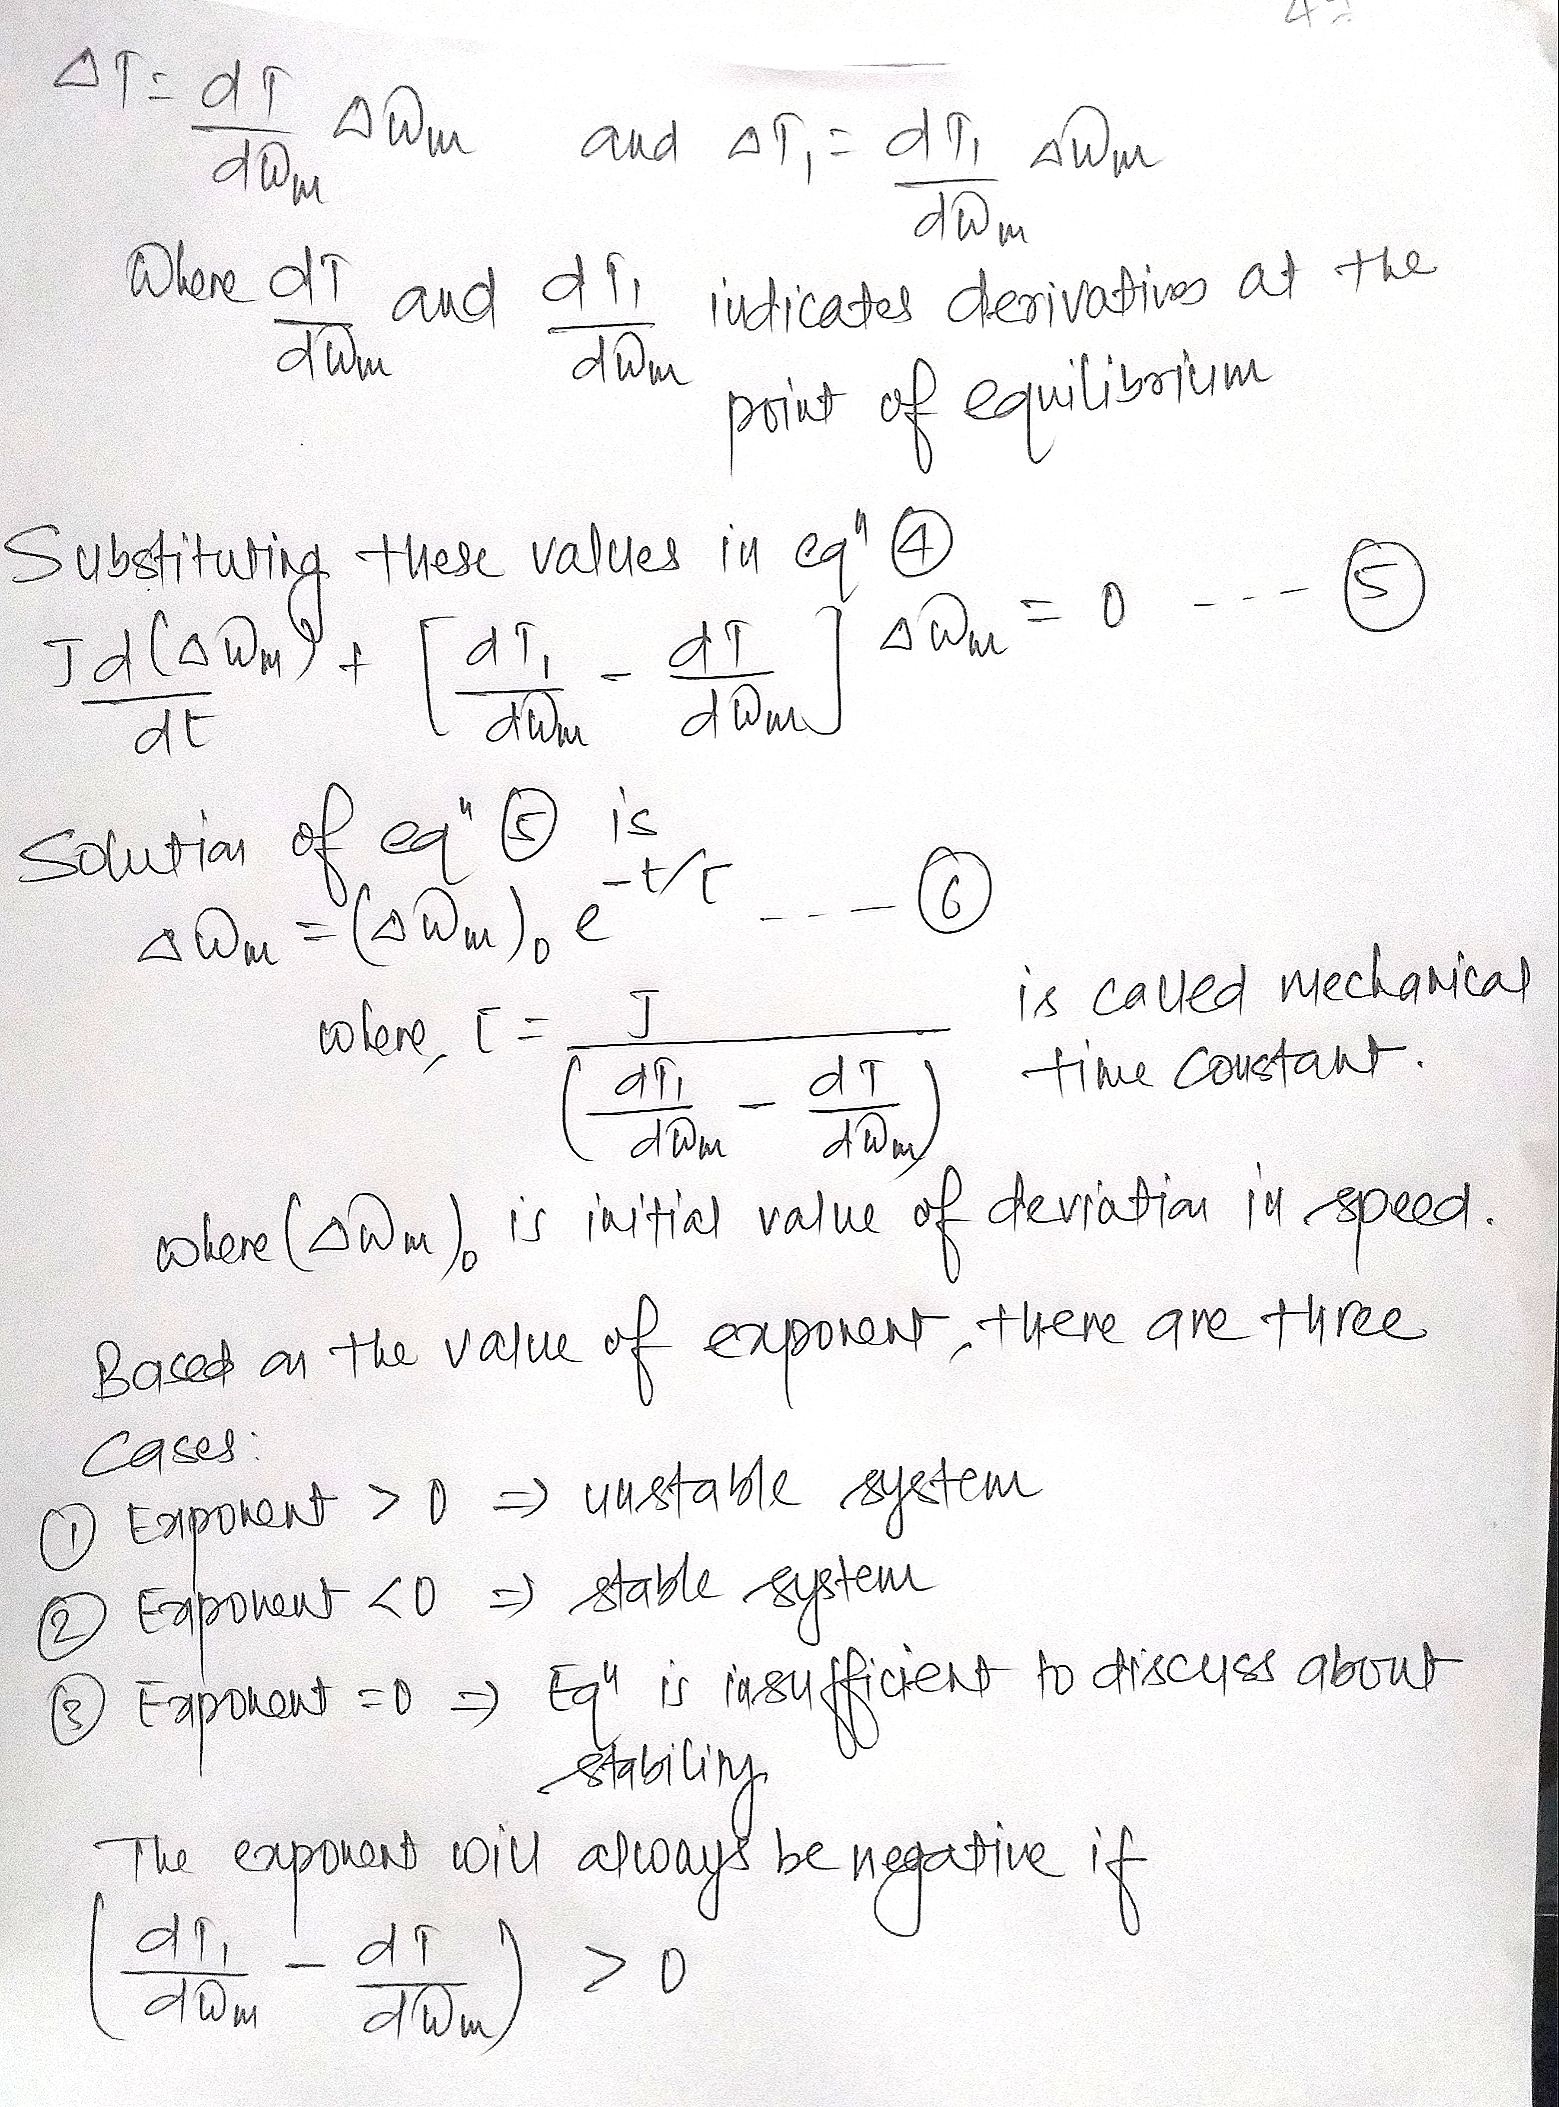 ΔT = dT/dωm Δωm and ΔT₁ = dT₁/dωm Δωm
Where dT/dωm and dT₁/dωm indicates derivatives at the
point of equilibrium
Substituting these values in eqⁿ ④
J d(Δωm)/dt + [dT₁/dωm - dT/dωm] Δωm = 0 --- ⑤
Solution of eqⁿ ⑤ is
Δωm = (Δωm)₀ e^(-t/τ) --- ⑥
where, τ = J/(dT₁/dωm - dT/dωm) is called mechanical
time constant.
where (Δωm)₀ is initial value of deviation in speed.
Based on the value of exponent, there are three
Cases:
① Exponent > 0 ⇒ unstable system
② Exponent < 0 ⇒ stable system
③ Exponent = 0 ⇒ Eqⁿ is insufficient to discuss about
stability
The exponent will always be negative if
(dT₁/dωm - dT/dωm) > 0